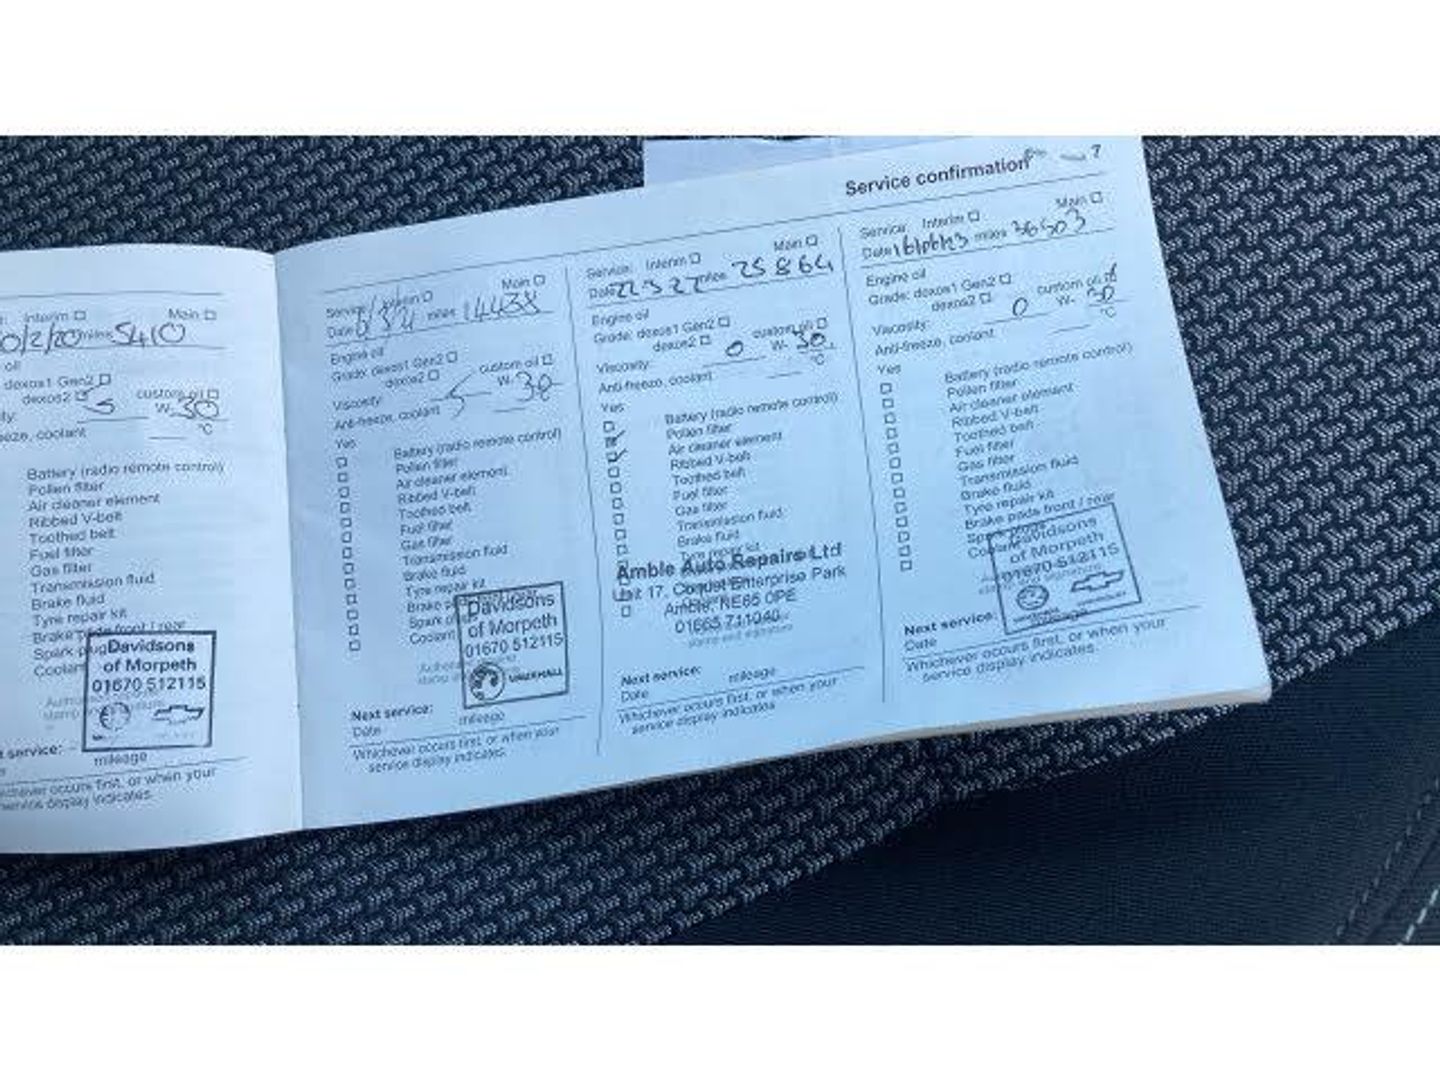 Interim ☐ Main ☐
0/2/20 miles 5410
oil
dexos1 Gen2 ☐
dexos2 custom oil ☐
5 W- 30
coolant °C
Battery (radio remote control)
Pollen filter
Air cleaner element
Ribbed V-belt
Toothed belt
Fuel filter
Gas filter
Transmission fluid
Brake fluid
Tyre repair kit
Brake pads front / rear
Spark plug
Coolant
Davidsons
of Morpeth
01670 512115
service:
mileage
occurs first, or when your
service display indicates.
Service Interim ☐ Main ☐
Date miles 14438
Engine oil
Grade: dexos1 Gen2 ☐
dexos2 ☐ custom oil ☐
Viscosity: 5 W- 30
Anti-freeze, coolant
Yes
☐ Battery (radio remote control)
☐ Pollen filter
☐ Air cleaner element
☐ Ribbed V-belt
☐ Toothed belt
☐ Fuel filter
☐ Gas filter
☐ Transmission fluid
☐ Brake fluid
☐ Tyre repair kit
☐ Brake
☐ Spark
☐ Coolant
Davidsons
of Morpeth
01670 512115
VAUXHALL
Next service:
Date mileage
Whichever occurs first, or when your
service display indicates.
Service: Interim ☐ Main ☐
Date miles 25864
Engine oil
Grade: dexos1 Gen2 ☐
dexos2 ☐ custom oil ☐
Viscosity: 0 W- 30
Anti-freeze, coolant °C
Yes
Battery (radio remote control)
Pollen filter
Air cleaner element
Ribbed V-belt
Toothed belt
Fuel filter
Gas filter
Transmission fluid
Brake fluid
Tyre repair kit
Amble Auto Repairs Ltd
Unit 17, Coquet Enterprise Park
Amble, NE65 0PE
01665 711040
stamp and signature
Next service:
Date mileage
Whichever occurs first, or when your
service display indicates
Service confirmation 7
Service: Interim ☐ Main ☐
Date miles 36503
Engine oil
Grade: dexos1 Gen2 ☐
dexos2 ☐ custom oil
Viscosity: 0 W- 30
Anti-freeze, coolant °C
Yes
Battery (radio remote control)
Pollen filter
Air cleaner element
Ribbed V-belt
Toothed belt
Fuel filter
Gas filter
Transmission fluid
Brake fluid
Tyre repair kit
Brake pads front / rear
Davidsons
of Morpeth
01670 512115
Next service:
Date
Whichever occurs first, or when your
service display indicates.